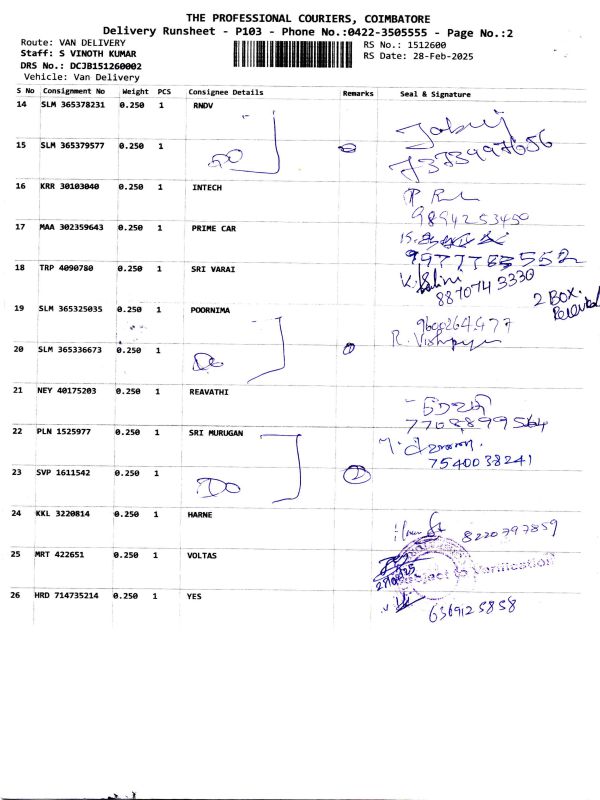 THE PROFESSIONAL COURIERS, COIMBATORE
Delivery Runsheet - P103 - Phone No.:0422-3505555 - Page No.:2
Route: VAN DELIVERY
Staff: S VINOTH KUMAR
DRS No.: DCJB151260002
Vehicle: Van Delivery
RS No.: 1512600
RS Date: 28-Feb-2025
S No Consignment No Weight PCS Consignee Details Remarks Seal & Signature
14 SLM 365378231 0.250 1 RNDV
15 SLM 365379577 0.250 1 Do
7373997656
16 KRR 30103040 0.250 1 INTECH
9894253450
17 MAA 302359643 0.250 1 PRIME CAR
18 TRP 4090780 0.250 1 SRI VARAI
8870743330
2 BOX
Received
19 SLM 365325035 0.250 1 POORNIMA
9600264477
20 SLM 365336673 0.250 1 Do
21 NEY 40175203 0.250 1 REAVATHI
7708899564
22 PLN 1525977 0.250 1 SRI MURUGAN
7540038241
23 SVP 1611542 0.250 1 Do 2
24 KKL 3220814 0.250 1 HARNE
8220797859
25 MRT 422651 0.250 1 VOLTAS
Subject to Verification
26 HRD 714735214 0.250 1 YES
6369125858